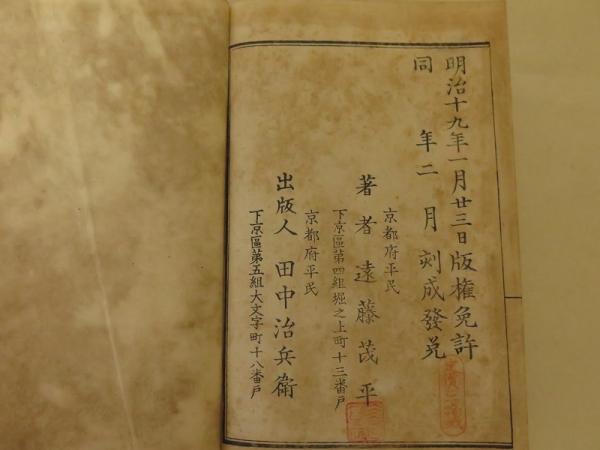 明治十九年一月廿三日版權免許
同年二月刻成發兌
京都府平民
著者遠藤茂平
下京區第四組堀之上町十三番戸
京都府平民
出版人田中治兵衛
下京區第五組大文字町十八番戸